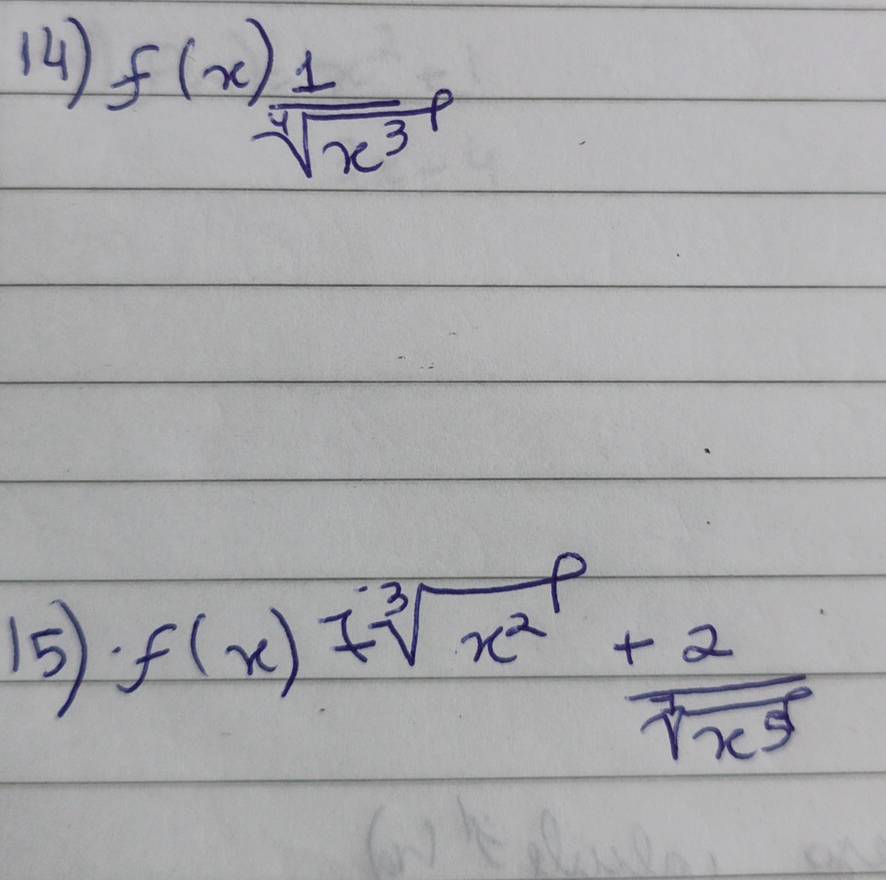 14) f(x) 1
∜x³
15) f(x) = ∛x² + 2
√x⁵